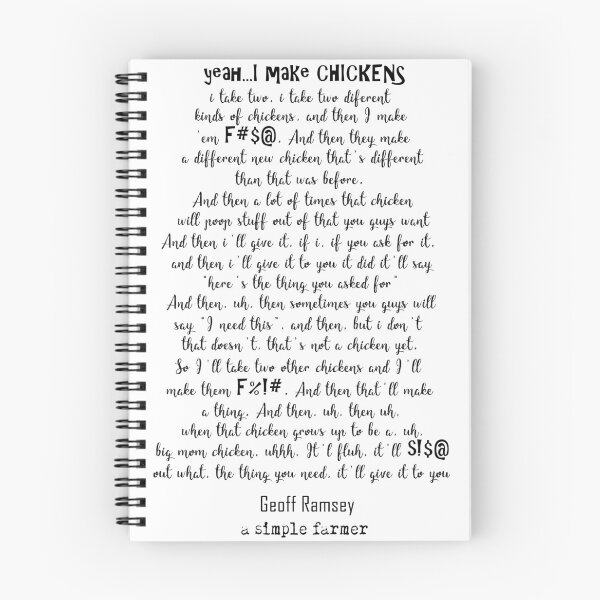 yeah...I make CHICKENS
i take two, i take two diferent
kinds of chickens, and then I make
'em F#$@. And then they make
a different new chicken that's different
than that was before.
And then a lot of times that chicken
will poop stuff out of that you guys want
And then i'll give it, if i, if you ask for it,
and then i'll give it to you it did it'll say
"here's the thing you asked for"
And then, uh, then sometimes you guys will
say "I need this", and then, but i don't
that doesn't, that's not a chicken yet.
So I'll take two other chickens and I'll
make them F%!#. And then that'll make
a thing. And then, uh, then uh,
when that chicken grows up to be a, uh,
big mom chicken, uhhh, It'l fluh, it'll S!$@
out what, the thing you need, it'll give it to you
Geoff Ramsey
a simple farmer